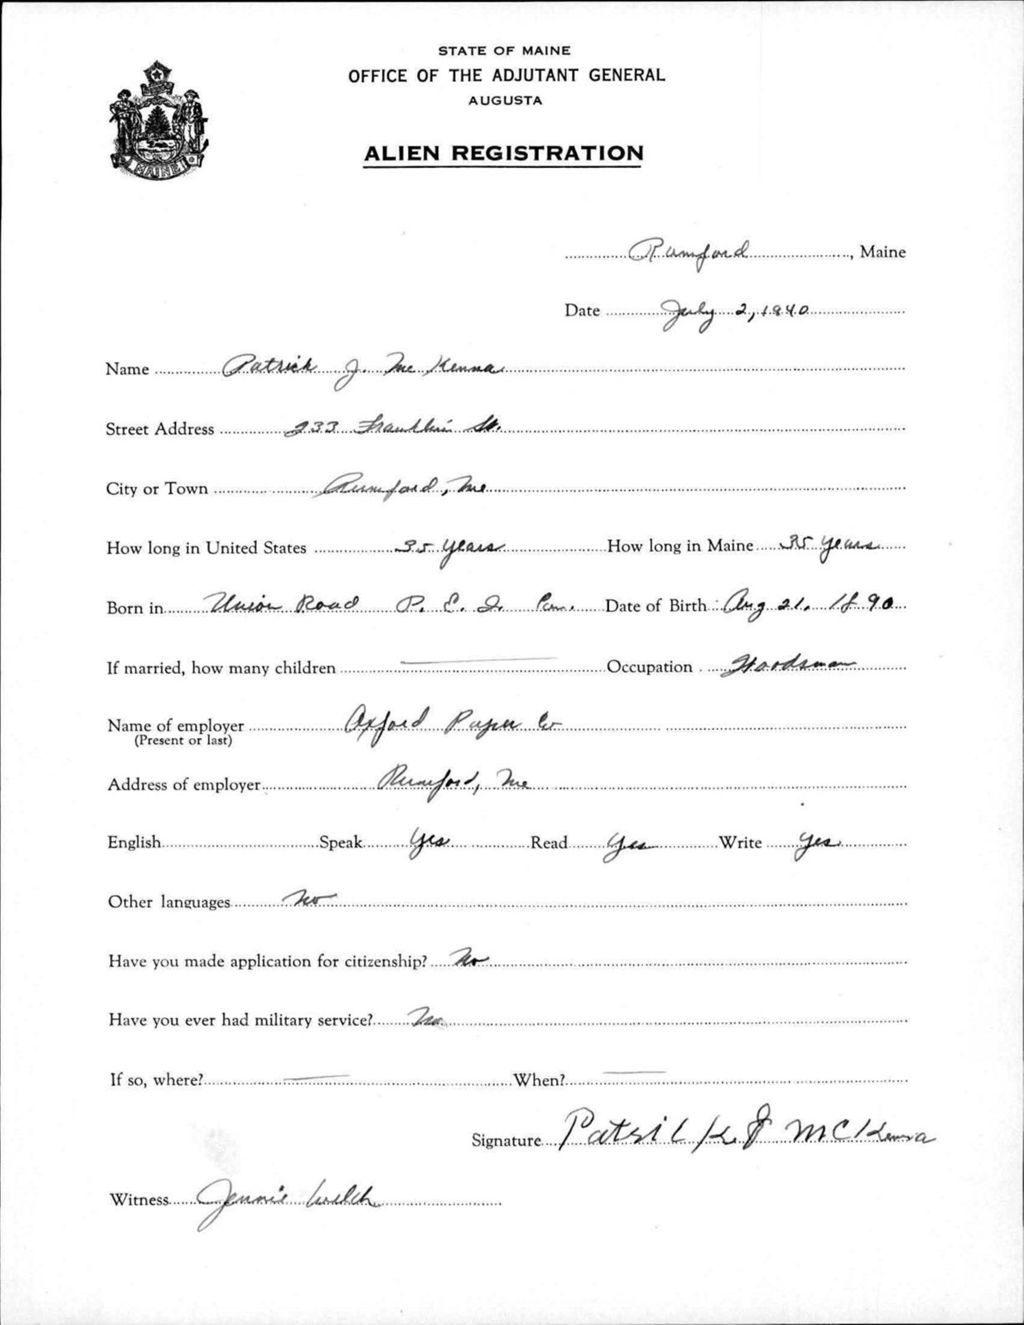 STATE OF MAINE
OFFICE OF THE ADJUTANT GENERAL
AUGUSTA
ALIEN REGISTRATION
MAINE
Rumford, Maine
Date July 2, 1940
Name Patrick J. McKenna
Street Address 233 Franklin St.
City or Town Rumford, Me
How long in United States 35 years How long in Maine 35 years
Born in Union Road P. E. I. Can. Date of Birth Aug 21. 1890
If married, how many children — Occupation Woodsman
Name of employer Oxford Paper Co
(Present or last)
Address of employer Rumford, Me
English Speak Yes Read Yes Write Yes
Other languages No
Have you made application for citizenship? No
Have you ever had military service? No
If so, where? — When? —
Signature Patrick J McKenna
Witness Jennie Welch